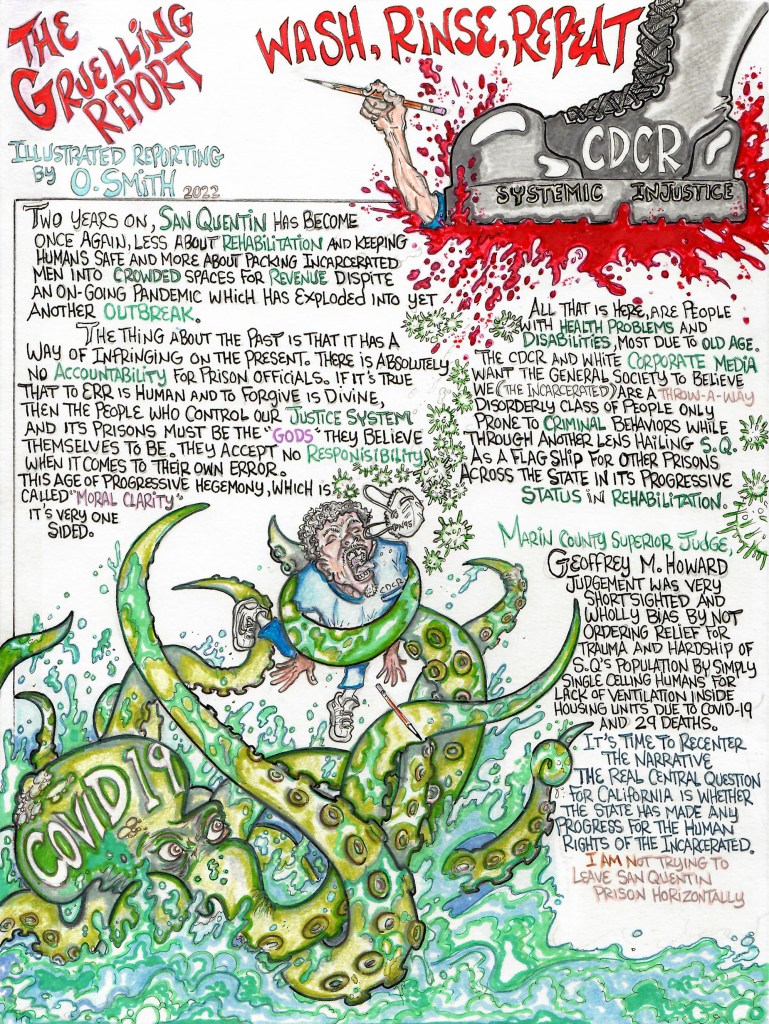 THE
GRUELLING
REPORT
WASH, RINSE, REPEAT
ILLUSTRATED REPORTING
BY O. SMITH 2022
CDCR
SYSTEMIC INJUSTICE
TWO YEARS ON, SAN QUENTIN HAS BECOME
ONCE AGAIN, LESS ABOUT REHABILITATION AND KEEPING
HUMANS SAFE AND MORE ABOUT PACKING INCARCERATED
MEN INTO CROWDED SPACES FOR REVENUE DISPITE
AN ON-GOING PANDEMIC WHICH HAS EXPLODED INTO YET
ANOTHER OUTBREAK.
THE THING ABOUT THE PAST IS THAT IT HAS A
WAY OF INFRINGING ON THE PRESENT. THERE IS ABSOLUTELY
NO ACCOUNTABILITY FOR PRISON OFFICIALS. IF IT'S TRUE
THAT TO ERR IS HUMAN AND TO FORGIVE IS DIVINE,
THEN THE PEOPLE WHO CONTROL OUR JUSTICE SYSTEM
AND IT'S PRISONS MUST BE THE "GODS" THEY BELIEVE
THEMSELVES TO BE. THEY ACCEPT NO RESPONISIBILITY
WHEN IT COMES TO THEIR OWN ERROR.
THIS AGE OF PROGRESSIVE HEGEMONY, WHICH IS
CALLED "MORAL CLARITY"
IT'S VERY ONE
SIDED.
ALL THAT IS HERE, ARE PEOPLE
WITH HEALTH PROBLEMS AND
DISABILITIES, MOST DUE TO OLD AGE.
THE CDCR AND WHITE CORPORATE MEDIA
WANT THE GENERAL SOCIETY TO BELIEVE
WE (THE INCARCERATED) ARE A THROW-A-WAY
DISORDERLY CLASS OF PEOPLE ONLY
PRONE TO CRIMINAL BEHAVIORS WHILE
THROUGH ANOTHER LENS HAILING S.Q.
AS A FLAG SHIP FOR OTHER PRISONS
ACROSS THE STATE IN ITS PROGRESSIVE
STATUS IN REHABILITATION.
KPN95
CDCR
COVID 19
MARIN COUNTY SUPERIOR JUDGE,
GEOFFREY M. HOWARD
JUDGEMENT WAS VERY
SHORT SIGHTED AND
WHOLLY BIAS BY NOT
ORDERING RELIEF FOR
TRAUMA AND HARDSHIP OF
S.Q'S POPULATION BY SIMPLY
SINGLE CELLING HUMANS FOR
LACK OF VENTILATION INSIDE
HOUSING UNITS DUE TO COVID-19
AND 29 DEATHS.
IT'S TIME TO RECENTER
THE NARRATIVE
THE REAL CENTRAL QUESTION
FOR CALIFORNIA IS WHETHER
THE STATE HAS MADE ANY
PROGRESS FOR THE HUMAN
RIGHTS OF THE INCARCERATED.
I AM NOT TRYING TO
LEAVE SAN QUENTIN
PRISON HORIZONTALLY